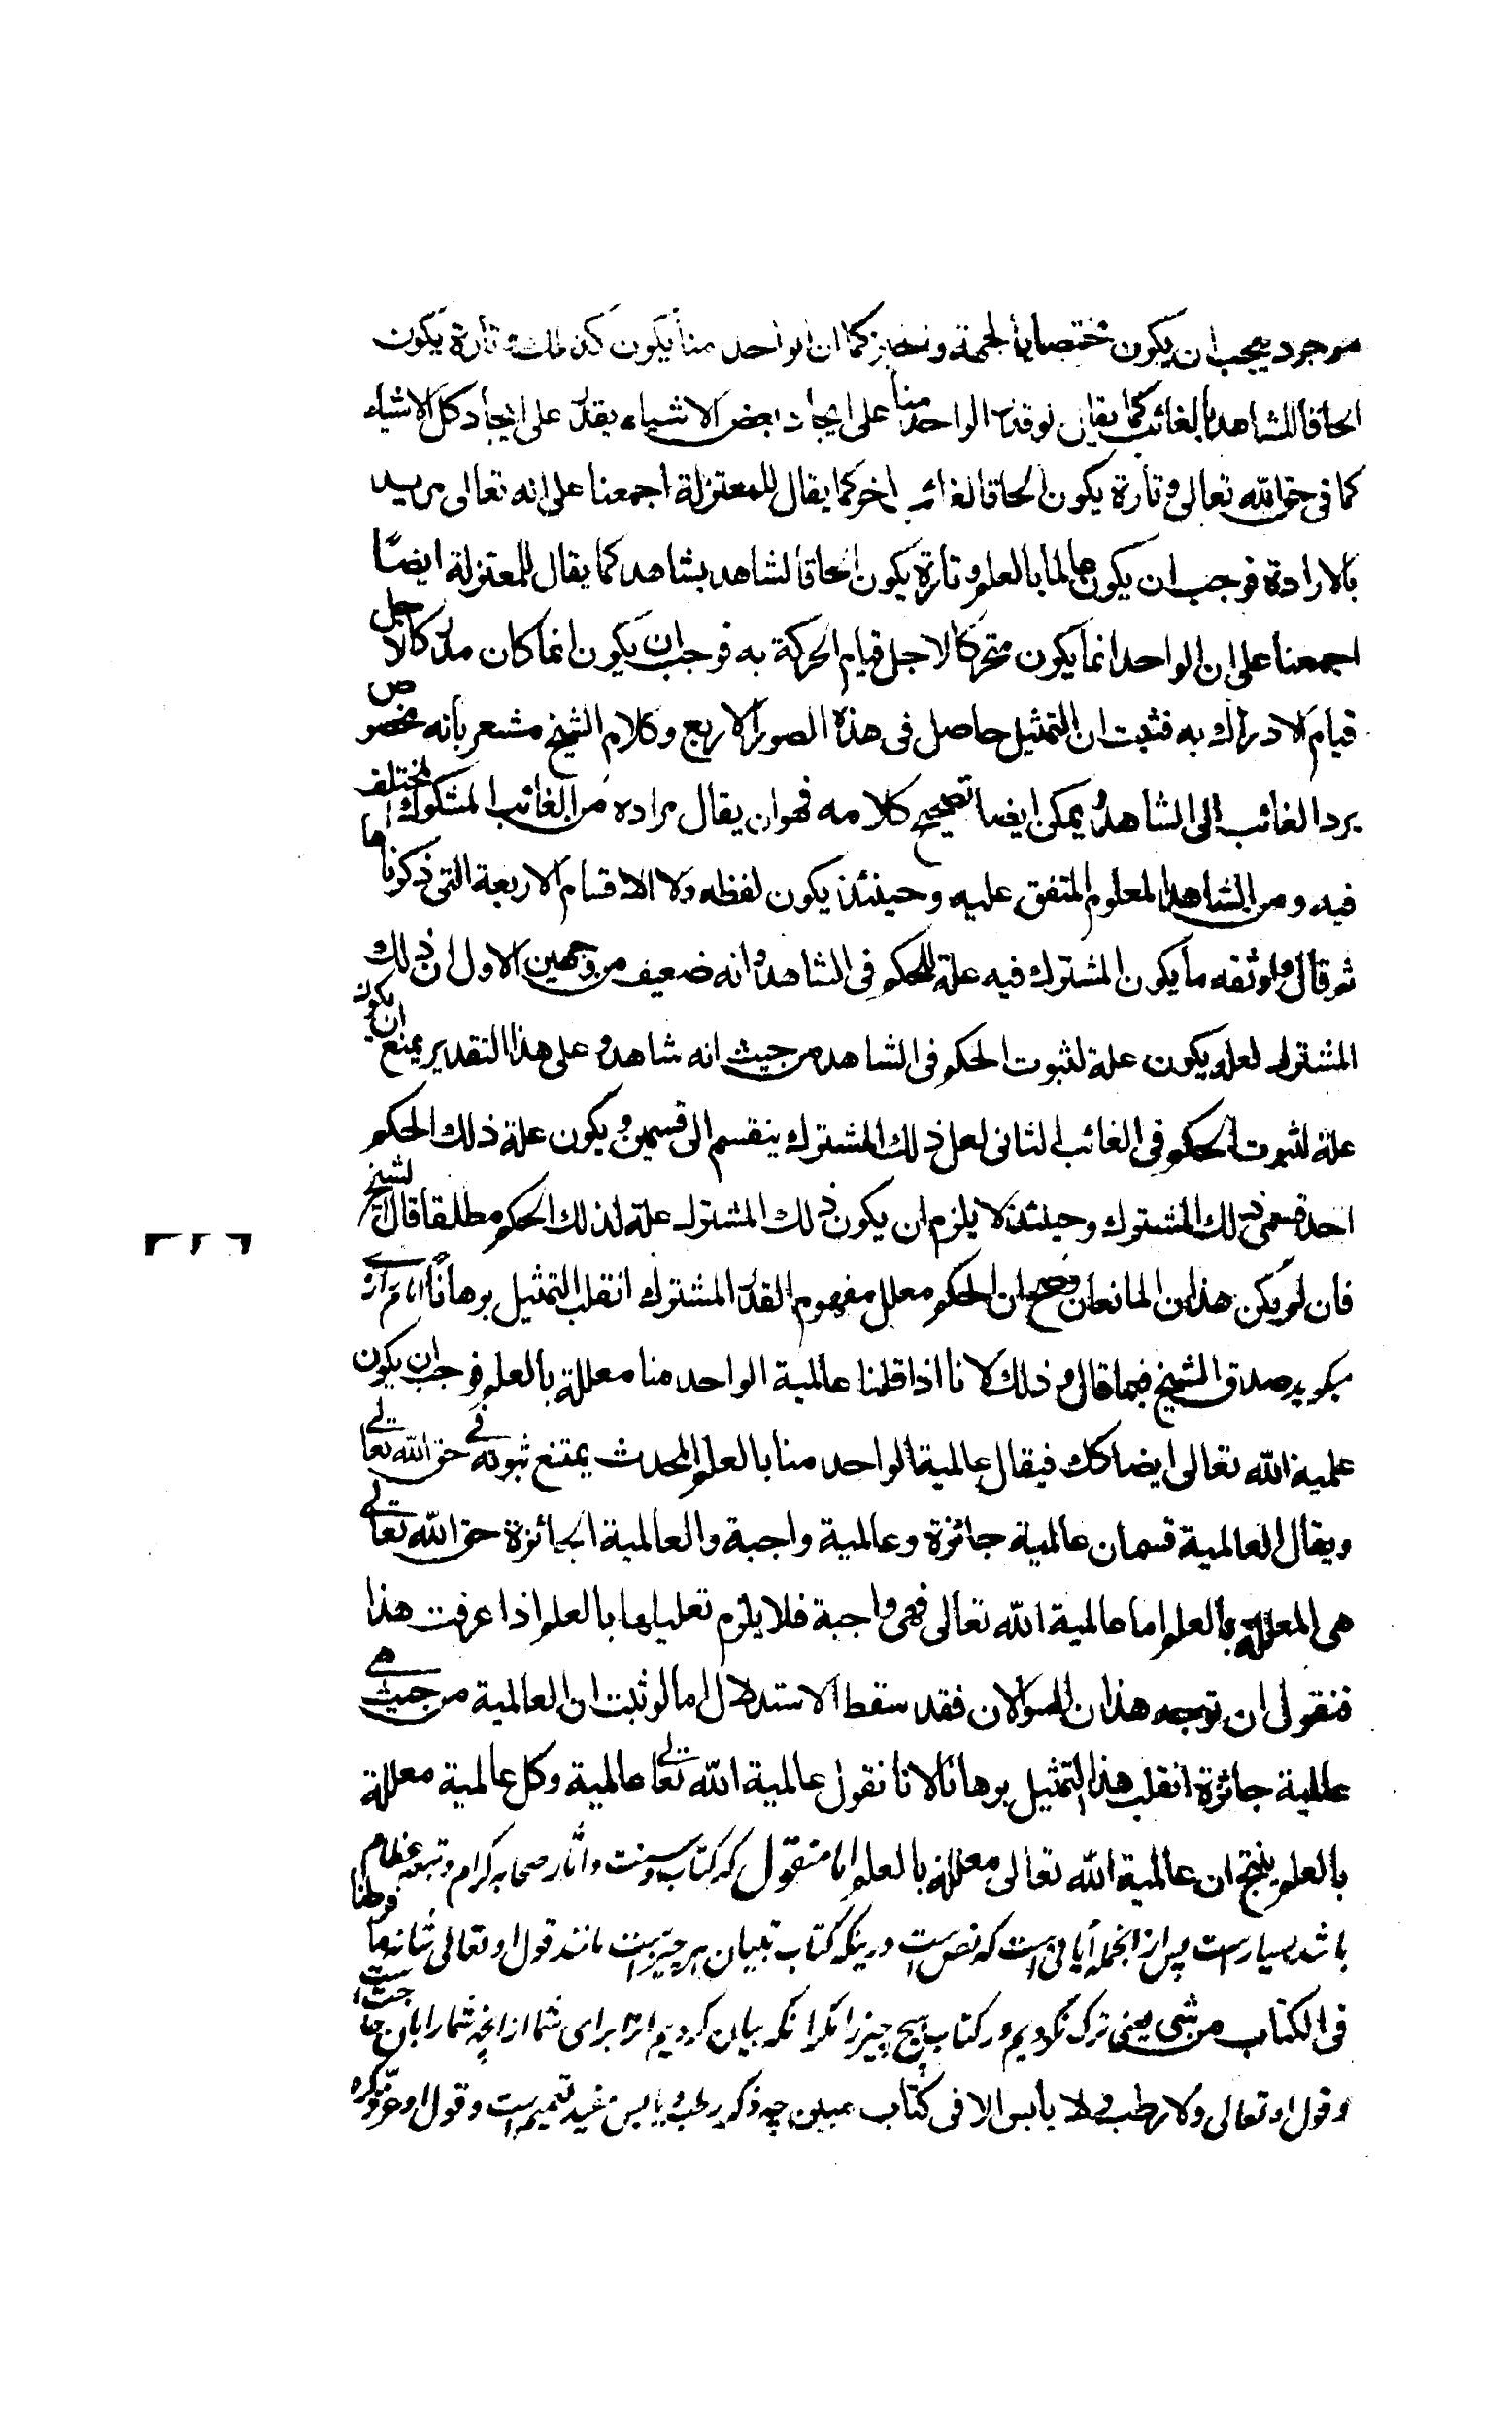 موجود يجب ان يكون مختصا بالجهة وتحيز كما ان الواحد منا يكون كذلك وتارة يكون
الحاقا للشاهد بالغائب كما يقال لو قدر الواحد منا على ايجاد بعض الاشياء يقدر على ايجاد كل الاشياء
كما فى حق الله تعالى وتارة يكون الحاقا لغائب اخر كما يقال للمعتزلة اجمعنا على انه تعالى مريد
بالارادة فوجب ان يكون عالما بالعلم وتارة يكون الحاقا لشاهد بشاهد كما يقال للمعتزلة ايضا
اجمعنا على ان الواحد انما يكون متحركا لاجل قيام الحركة به فوجب ان يكون انما كان مدركا لاجل
قيام الادراك به فثبت ان التمثيل حاصل فى هذه الصور الاربع وكلام الشيخ مشعر بانه مخصوص
برد الغائب الى الشاهد ويمكن ايضا تصحيح كلامه فهو ان يقال مراده من الغائب المشكوك المختلف
فيه ومن الشاهد المعلوم المتفق عليه وحينئذ يكون لفظه دالا الاقسام الاربعة التى ذكرناها
ثم قال واوثقه ما يكون المشترك فيه علة للحكم فى الشاهد وانه ضعيف من وجهين الاول ان ذلك
المشترك لعله يكون علة لثبوت الحكم فى الشاهد من حيث انه شاهد وعلى هذا التقدير يمنع ان يكون
علة لثبوت الحكم فى الغائب الثانى لعل ذلك المشترك ينقسم الى قسمين ويكون علة ذلك الحكم
احد قسمى ذلك المشترك وحينئذ لا يلزم ان يكون ذلك المشترك علة لذلك الحكم مطلقا قال الشيخ
فان لم يكن هذان المانعان وصح ان الحكم معلل مفهوم القدر المشترك انقلب التمثيل برهانا امام رازى
ميكويد صدق الشيخ فيما قال وذلك لانا اذا قلنا عالمية الواحد منا معللة بالعلم فوجب ان يكون
علمية الله تعالى ايضا كك فيقال عالمية الواحد منا بالعلم المحدث يمتنع ثبوته فى حق الله تعالى
ويقال العالمية قسمان عالمية جائزة وعالمية واجبة والعالمية الجائزة حق الله تعالى
هى المعللة بالعلم اما عالمية الله تعالى فهى واجبة فلا يلزم تعليلها بالعلم اذا عرفت هذا
فنقول ان توجه هذان السوالان فقد سقط الاستدلال اما لو ثبت ان العالمية من حيث هى
عالمية جائزة انقلب هذا التمثيل برهانا لانا نقول عالمية الله تعالى عالمية وكل عالمية معللة
بالعلم ينتج ان عالمية الله تعالى معللة بالعلم اما منقول كه كتاب وسنت وآثار صحابه كرام وتبعه عظام
باشد بسيار است پس از انجمله آياتى است كه نص است درينكه كتاب تبيان هر چيز است مانند قول او تعالى شانه ما فرطنا
فى الكتاب من شى يعنى ترك نكرديم در كتاب هيچ چيز را مگر انكه بيان كرديم انرا براى شما از انچه شما را بان حاجت است
وقول او تعالى ولا رطب ولا يابس الا فى كتاب مبين چه ذكر رطب ويابس مفيد تعميم است وقول او عز ذكره